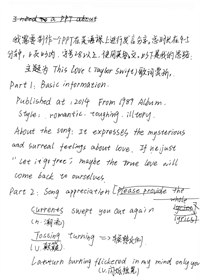 3 need to a PPT about
我需要制作一个PPT在英语课上进行发言分享，总时长在4-5
分钟，6页的内容，3号以上，使用英文，以下是我的思路：
主题为 This Love (Taylor Swift) 歌词赏析。
Part 1: Basic information:
Published at: 2014 From 1989 Album.
Style: romantic. toughing. illtery.
About the song: It expresses the mysterious
and surreal feelings about love. If we just
"Let it go free", maybe the true love will
come back to ourselves
Part 2: Song appreciation (Please provide the
whole
lyrics)
Currents swept you out again
(n. 潮流)
Tossing turning =>
(v. 颠簸)
Lantern burning flickered in my mind only you
(v. 闪烁)